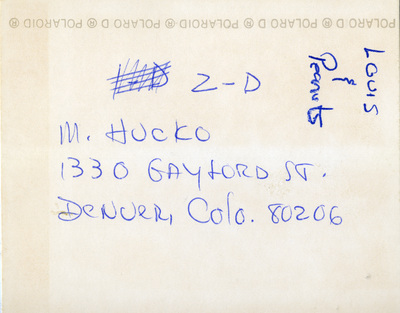 D ® POLAROID ® POLAROID ® POLAROID ® POLAROID ®
2-D
M. HUCKO
1330 GAYLORD ST.
DENVER, Colo. 80206
LOUIS
&
Peanuts